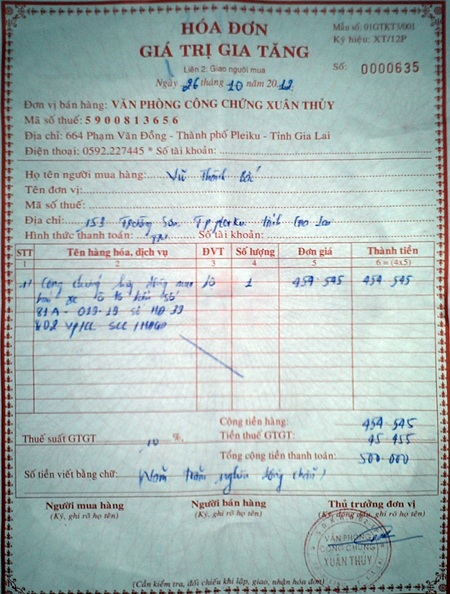 HÓA ĐƠN
GIÁ TRỊ GIA TĂNG
Mẫu số: 01GTKT3/001
Ký hiệu: XT/12P
Số: 0000635
Liên 2: Giao người mua
Ngày 26 tháng 10 năm 2012
Đơn vị bán hàng: VĂN PHÒNG CÔNG CHỨNG XUÂN THỦY
Mã số thuế: 5900813656
Địa chỉ: 664 Phạm Văn Đồng - Thành phố Pleiku - Tỉnh Gia Lai
Điện thoại: 0592.227445 * Số tài khoản:
Họ tên người mua hàng: Vũ Thanh
Tên đơn vị:
Mã số thuế:
Địa chỉ: 153 Trường Sơn TP pleiku tỉnh Gia Lai
Hình thức thanh toán: TM Số tài khoản:
STT Tên hàng hóa, dịch vụ ĐVT Số lượng Đơn giá Thành tiền
1 2 3 4 5 6 = (4x5)
1/ Công chứng hợp đồng mua bộ 1 454 545 454 545
bán xe ô tô biển số
81A - 019-19 số HĐ 19
Cộng tiền hàng: 454 545
Thuế suất GTGT: 10 %, Tiền thuế GTGT: 45 455
Tổng cộng tiền thanh toán: 500 000
Số tiền viết bằng chữ: Năm trăm nghìn đồng chẵn
Người mua hàng Người bán hàng Thủ trưởng đơn vị
(Ký, ghi rõ họ tên) (Ký, ghi rõ họ tên) (Ký, đóng dấu, ghi rõ họ tên)
VĂN PHÒNG
CÔNG CHỨNG
XUÂN THỦY
(Cần kiểm tra, đối chiếu khi lập, giao, nhận hóa đơn)